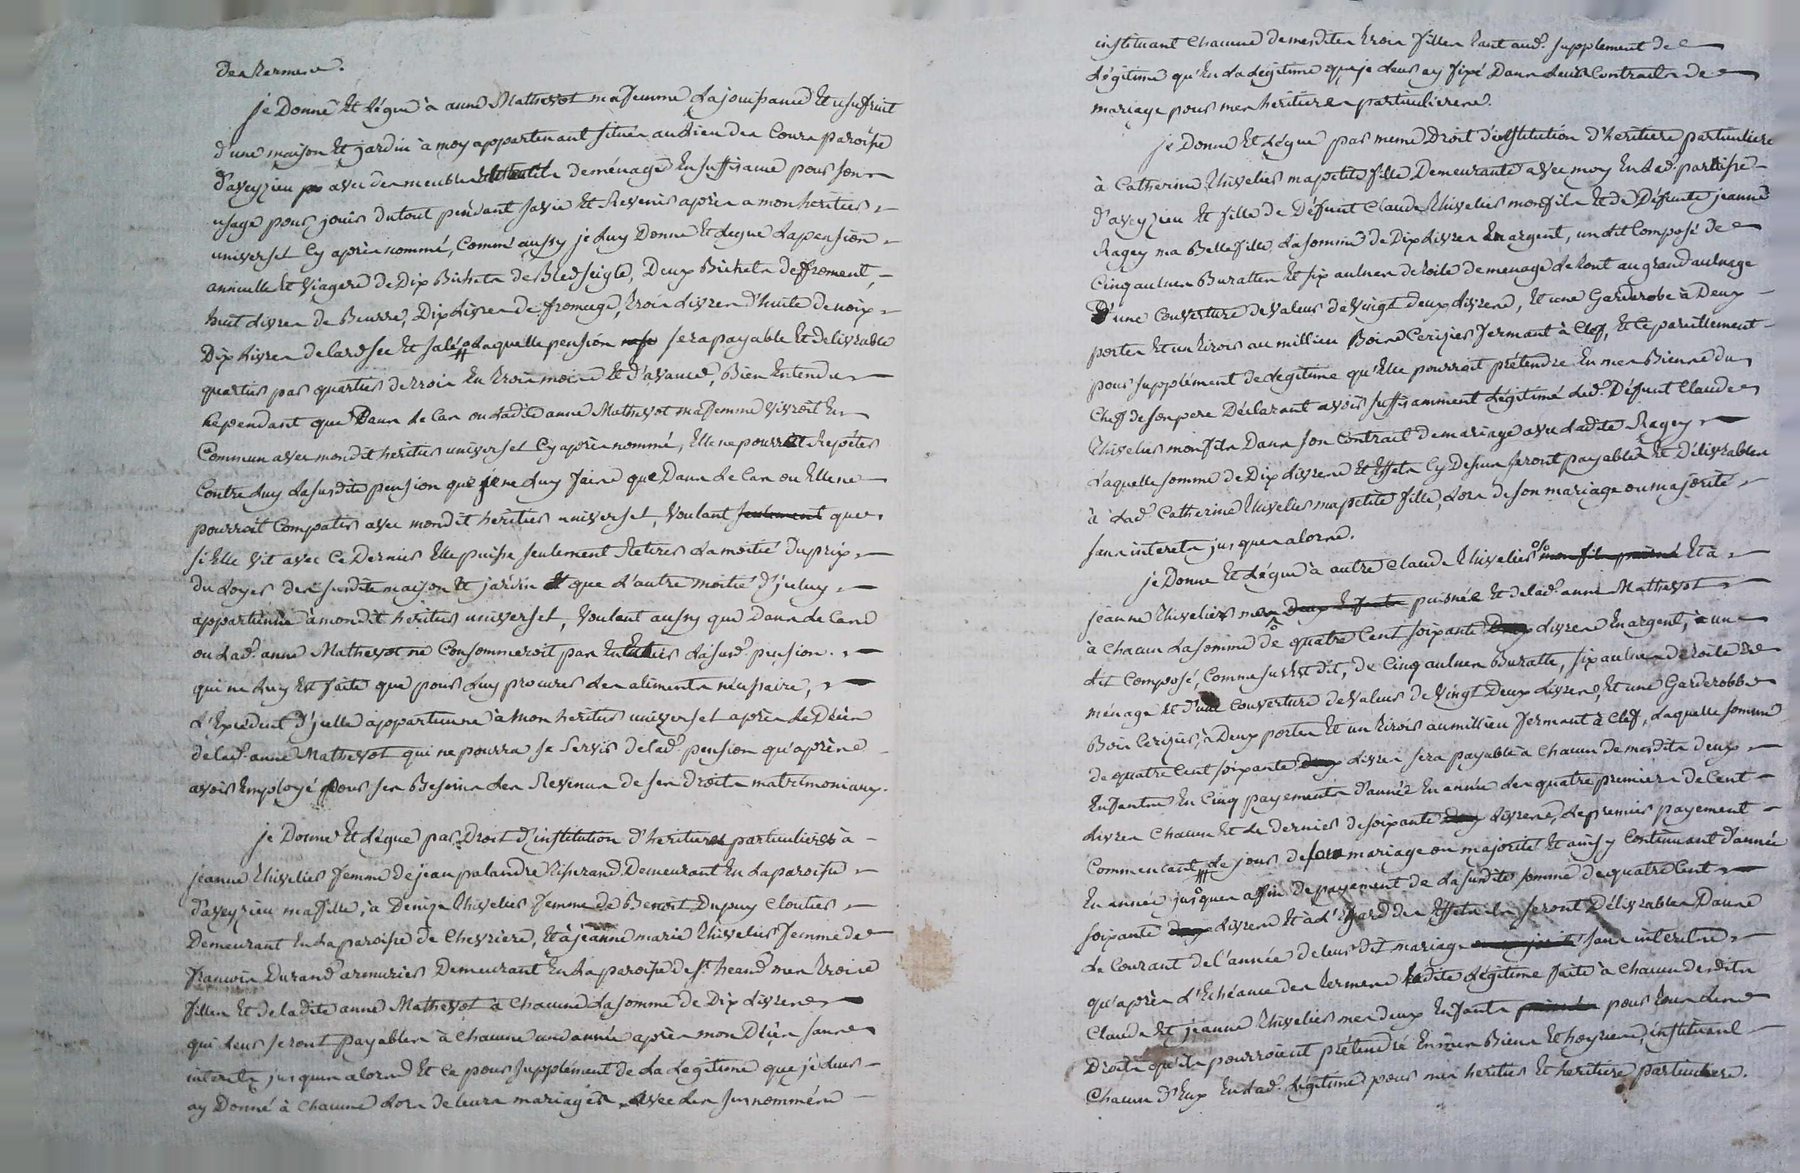 des termes.
je Donne Et Lègue à anne Mathevot ma femme La jouissance Et usufruit
d'une maison Et jardin à moy appartenant située au Lieu des Cours paroisse
d'aveyzieu avec des meubles Et outils de ménage En suffisance pour son
usage pour jouir du tout pendant sa vie Et Revenir après a mon heritier
universel Cy après nommé, Comme aussy je Luy Donne Et Legue La pension
annuelle Et Viagere de Dix Bichets de Bled seigle, Deux Bichets de froment,
huit Livres de Beurre, Dix Livres de fromage, trois Livres d'huile de noix
Dix Livres de Lard sec Et salé Laquelle pension sera payable Et delivrable
quartier par quartier de trois En trois mois Et d'avance, Bien Entendu
Cependant que Dans Le Cas ou Ladite anne Mathevot ma femme Vivroit En
Commun avec mondit heritier universel Cy après nommé, Elle ne pourroit Repéter
Contre Luy La susdite pension que je ne Luy faire que Dans Le Cas ou Elle ne
pourroit Compatir avec mondit heritier universel, Voulant seulement que
si Elle Vit avec Ce Dernier Elle puisse seulement Retirer La moitié du prix
du Loyer des susdite maison Et jardin Et que L'autre moitié d'jceluy
appartienne à mondit heritier universel, Voulant aussy que Dans Le Cas
ou Lad. anne Mathevot ne Consommeroit pas En Entier La susd. pension
qui ne Luy Est faite que pour Luy procurer des aliments nécessaire,
L'Expédient d'jcelle appartienne à mon heritier universel après Le Décès
de Lad. anne Mathevot qui ne pourra se servir de Lad. pension qu'après
avoir Employé pour ses Besoins Les Revenus de ses Droits matrimoniaux.
je Donne Et Lègue par Droit d'institution d'heritieres particulieres à
jeanne Thivelier femme de jean palandre Tisserand Demeurant En La paroisse
d'aveyzieu ma fille, à Denize Thivelier femme de Benoit Dupuy Cloutier
Demeurant En La paroisse de Chevriere, Et à jeanne marie Thivelier femme de
françois Durand armurier Demeurant En La paroisse de St. heand mes trois
filles Et de Ladite anne Mathevot à Chacune La somme de Dix Livres
qui Leur seront payables à Chacune une année après mon Décès sans
interets jusques alors Et Ce pour supplément de La Legitime que je Leur
ay Donné à Chacune Lors de Leurs mariages, avec Les surnommés
instituant Chacune de mesdites trois filles tant aud. supplement de
Légitime qu'En La Légitime que je Leur ay fixé Dans Leurs Contracts de
mariage pour mes heritieres particulieres.
je Donne Et Lègue par meme Droit d'institution d'heritiere particuliere
à Catherine Thivelier ma petite fille Demeurante avec moy En Lad. paroisse
d'aveyzieu Et fille de Défunt Claude Thivelier mon fils Et de Défunte jeanne
Ragey ma Belle fille La somme de Dix Livres En argent, un Lit Composé de
Cinq aulnes Buratte Et six aulnes de toile de menage Le tout au grand aulnage
D'une Couverture de Valeur de Vingt deux Livres, Et une Garderobe à Deux
portes Et un tiroir au millieu Bois de Cerizier fermant à Clef, Et Ce pareillement
pour supplément de Legitime qu'Elle pourroit prétendre En mes Biens du
Chef de son pere Déclarant avoir suffisamment Légitimé Led. Défunt Claude
Thivelier mon fils Dans son Contract de mariage avec Ladite Ragey
Laquelle somme de Dix Livres Et Effets Cy Dessus seront payables Et Délivrables
à Lad. Catherine Thivelier ma petite fille, Lors de son mariage ou majorité
sans interets jusques alors.
je Donne Et Lègue à autre Claude Thivelier mon fils puisné Et à
jeanne Thivelier mes Deux Enfants puisnés Et de Lad. anne Mathevot
à Chacun La somme de quatre Cent soixante Deux Livres En argent, un
Lit Composé, Comme sus Est dit, de Cinq aulnes Buratte, six aulnes de toile de
ménage Et d'une Couverture de Valeur de Vingt Deux Livres, Et une Garderobbe
Bois Cerizier, à Deux portes Et un tiroir au millieu fermant à Clef, Laquelle somme
de quatre Cent soixante Livres sera payable à Chacun de mesdits deux
Enfants En Cinq payements d'année En année Les quatre premiers de Cent
Livres Chacun Et Le dernier de soixante Livres, Le premier payement
Commencant Le jour de mariage ou majorité Et ainsy Continuant d'année
En année jusques affin de payement de La susdite somme de quatre Cent
soixante Livres Et à L'Egard des Effets ils seront Délivrables Dans
Le Courant de L'année de Leur dit mariage sans interets
qu'après L'Echéance des termes Ladite Légitime faite à Chacun desdits
Claude Et jeanne Thivelier mes deux Enfants pour tous Les
Droits qu'ils pourroient prétendre En mes Biens Et hoyries, instituant
Chacun d'Eux En Lad. Légitime pour mes heritier Et heritiere particuliere.